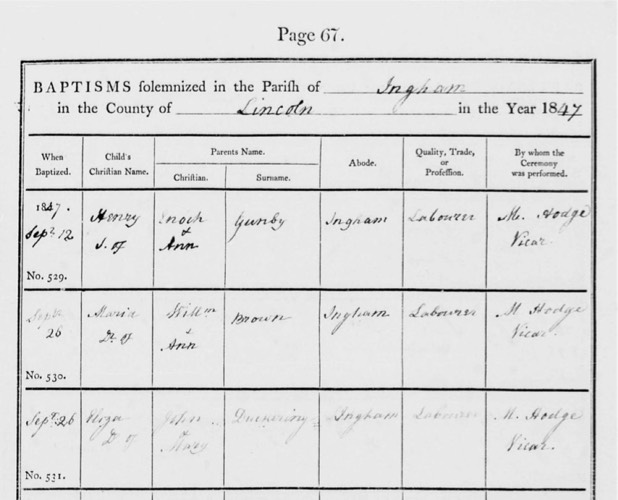 Page 67.
BAPTISMS solemnized in the Parish of Ingham
in the County of Lincoln in the Year 1847
When Baptized. Child's Christian Name. Parents Name. Christian. Surname. Abode. Quality, Trade, or Profession. By whom the Ceremony was performed.
1847. Henry Enoch Gunby Ingham Labourer M. Hodge
Sept. 12 S. of & Vicar
Ann
No. 529.
Septr Maria Willm Brown Ingham Labourer M Hodge
26 Dr of & Vicar.
Ann
No. 530.
Sept. 26 Eliza John Duckering Ingham Labourer M. Hodge
D. of Mary Vicar.
No. 531.